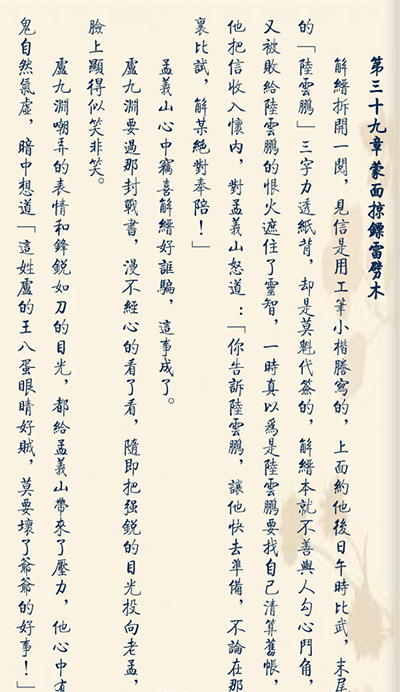 第三十九章蒙面掠鏢雷劈木
解縉拆開一閱，見信是用工筆小楷謄寫的，上面約他後日午時比武，末尾
的「陸雲鵬」三字力透紙背，却是莫魁代簽的，解縉本就不善與人勾心鬥角，
又被敗給陸雲鵬的恨火遮住了靈智，一時真以爲是陸雲鵬要找自己清算舊帳，
他把信收入懷內，對孟義山怒道：「你告訴陸雲鵬，讓他快去準備，不論在那
裏比試，解某絕對奉陪！」
孟義山心中竊喜解縉好誆騙，這事成了。
盧九淵要過那封戰書，漫不經心的看了看，隨即把强銳的目光投向老孟，
臉上顯得似笑非笑。
盧九淵嘲弄的表情和鋒銳如刀的目光，都給孟義山帶來了壓力，他心中有
鬼自然氣虛，暗中想道「這姓盧的王八蛋眼睛好賊，莫要壞了爺爺的好事！」